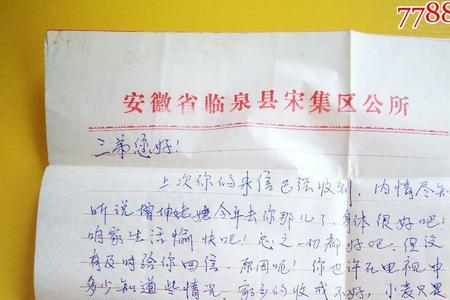 7788
安徽省临泉县宋集区公所
三弟您好！
上次你的来信已经收到，内情尽知
听说曾伸姥姥今年去你那儿了，身体很好吧！
咱家生活愉快吧！总之一切都好吧。但没
有及时给你回信，原因呢！你也许在电视中
多少知道些情况，家乡的收成不好，小麦只是